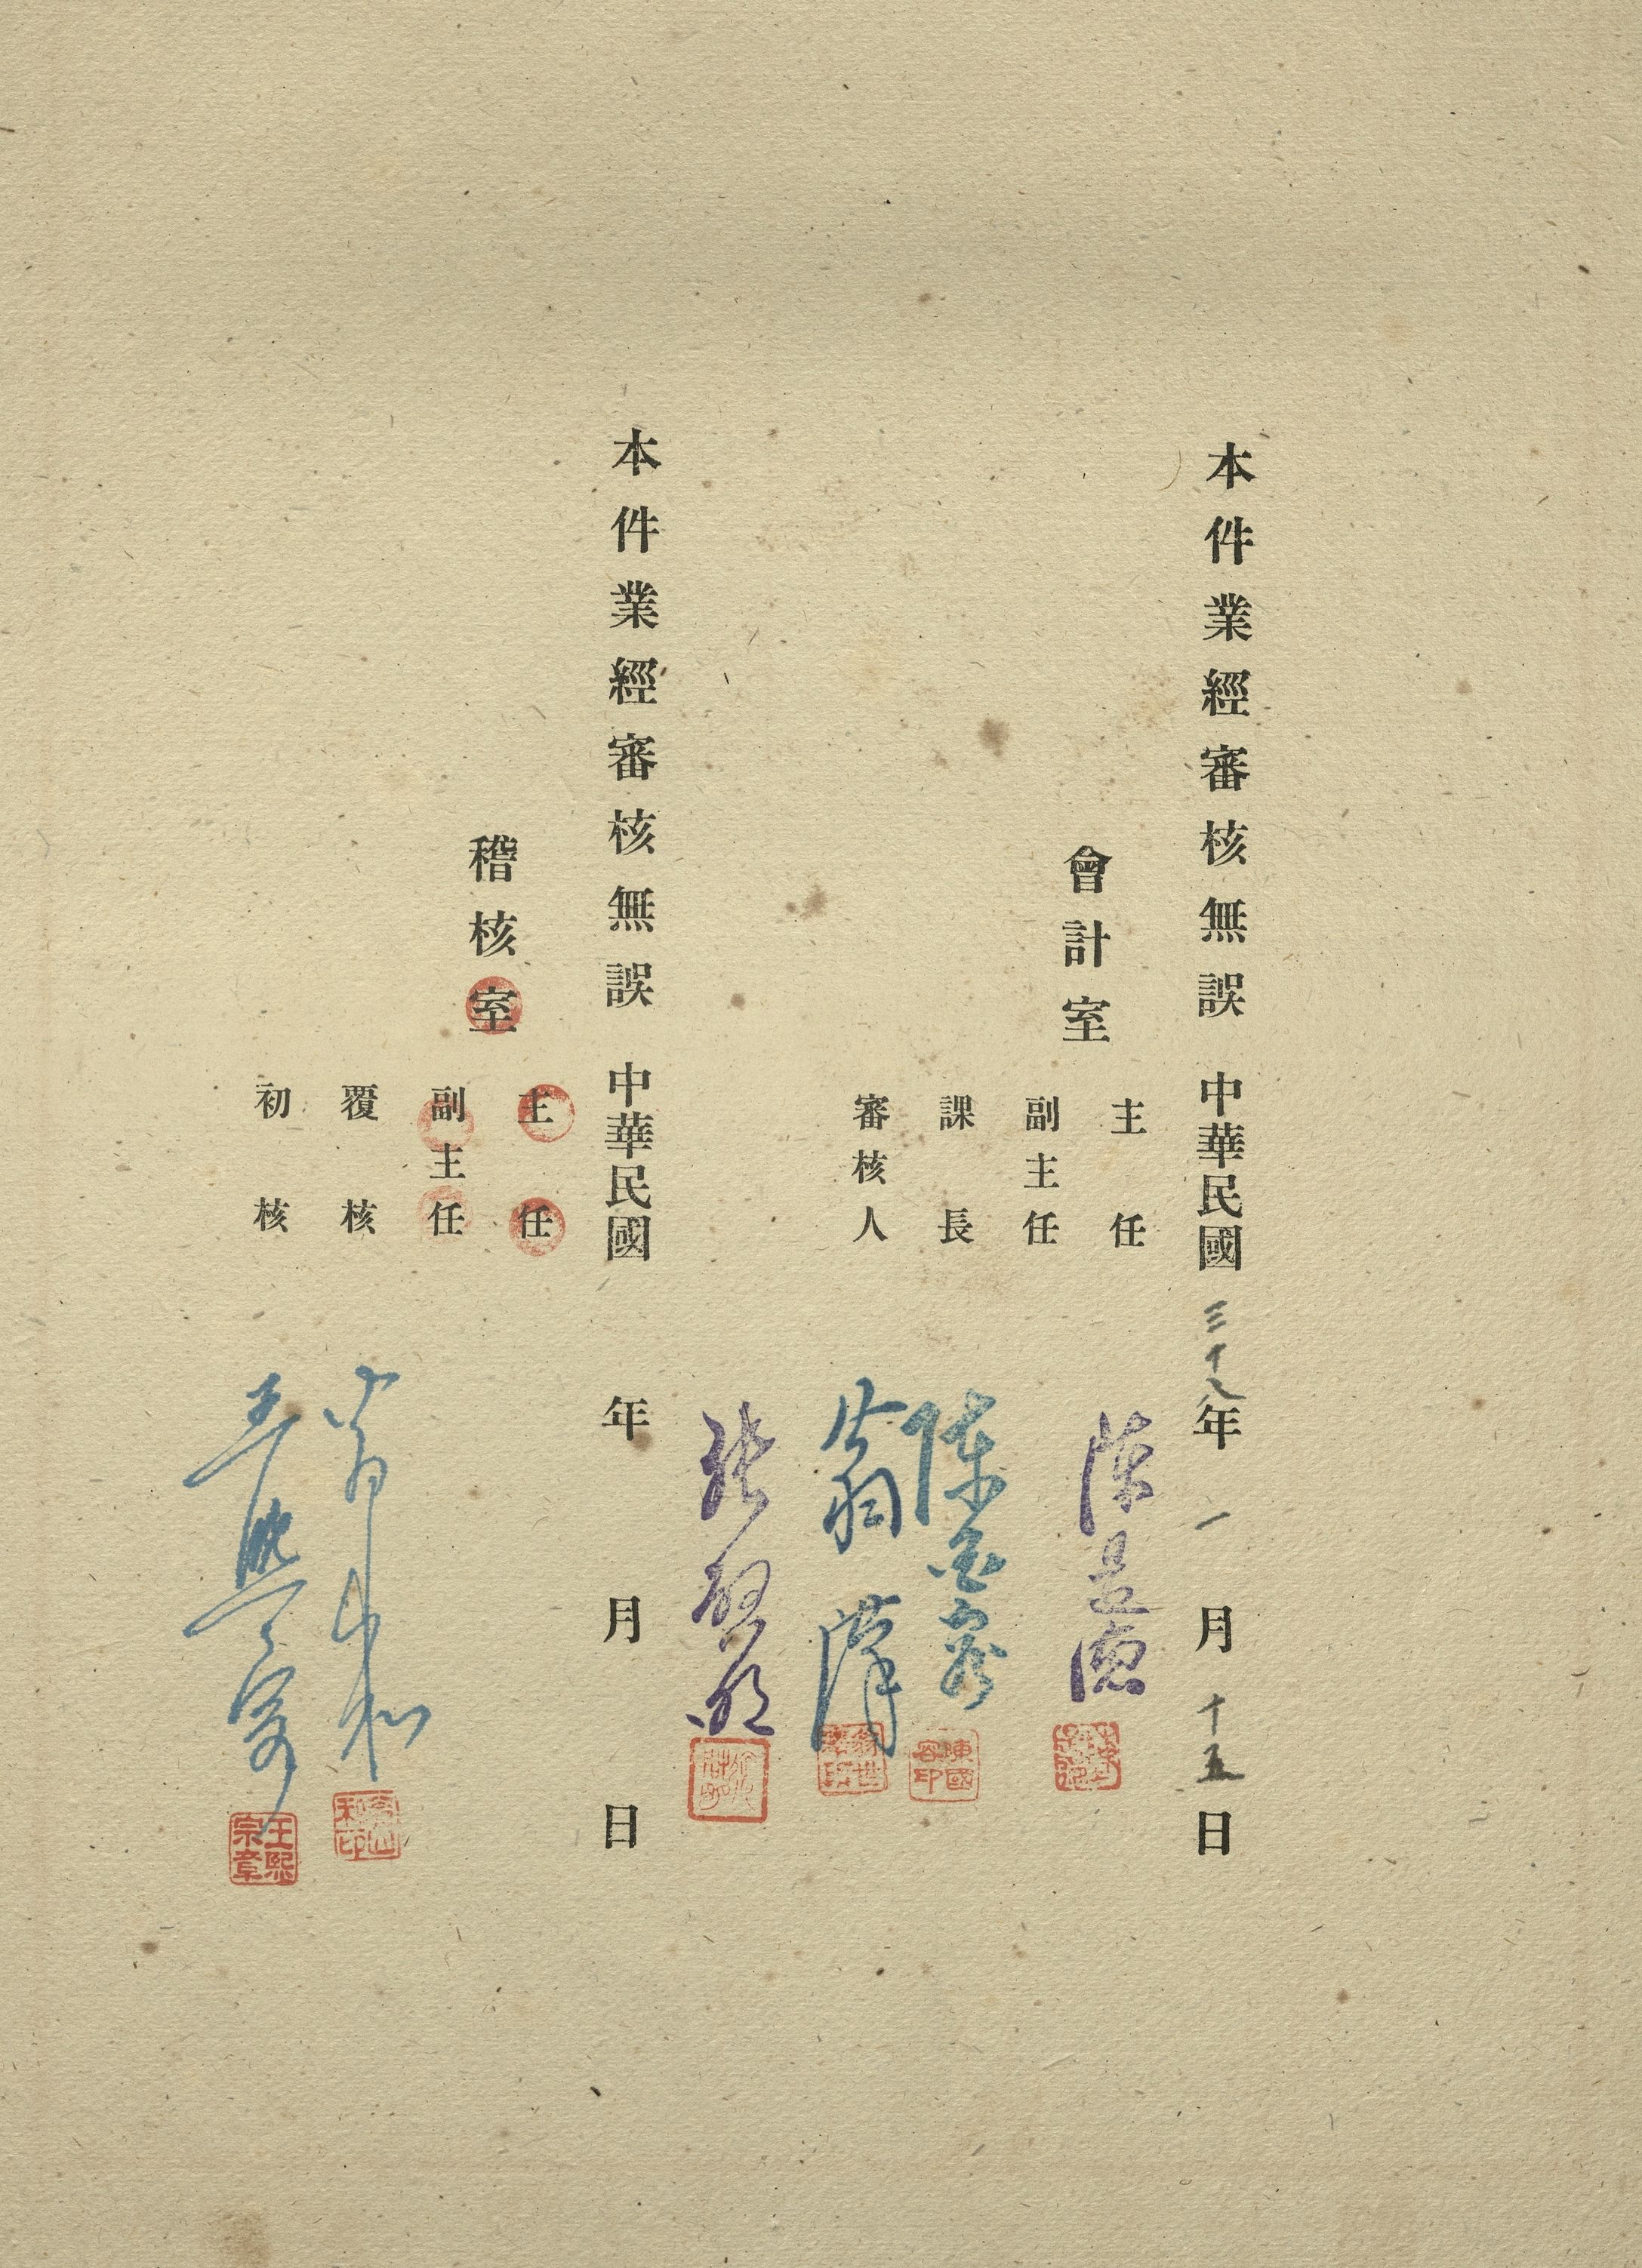 本件業經審核無誤 中華民國三十八年一月十五日
會計室
主任
陳
副主任
課長
陳國容
陳國容印
審核人
翁
張
本件業經審核無誤 中華民國 年 月 日
稽核室
主任
副主任
覆核
初核
王熙宗
王熙宗章